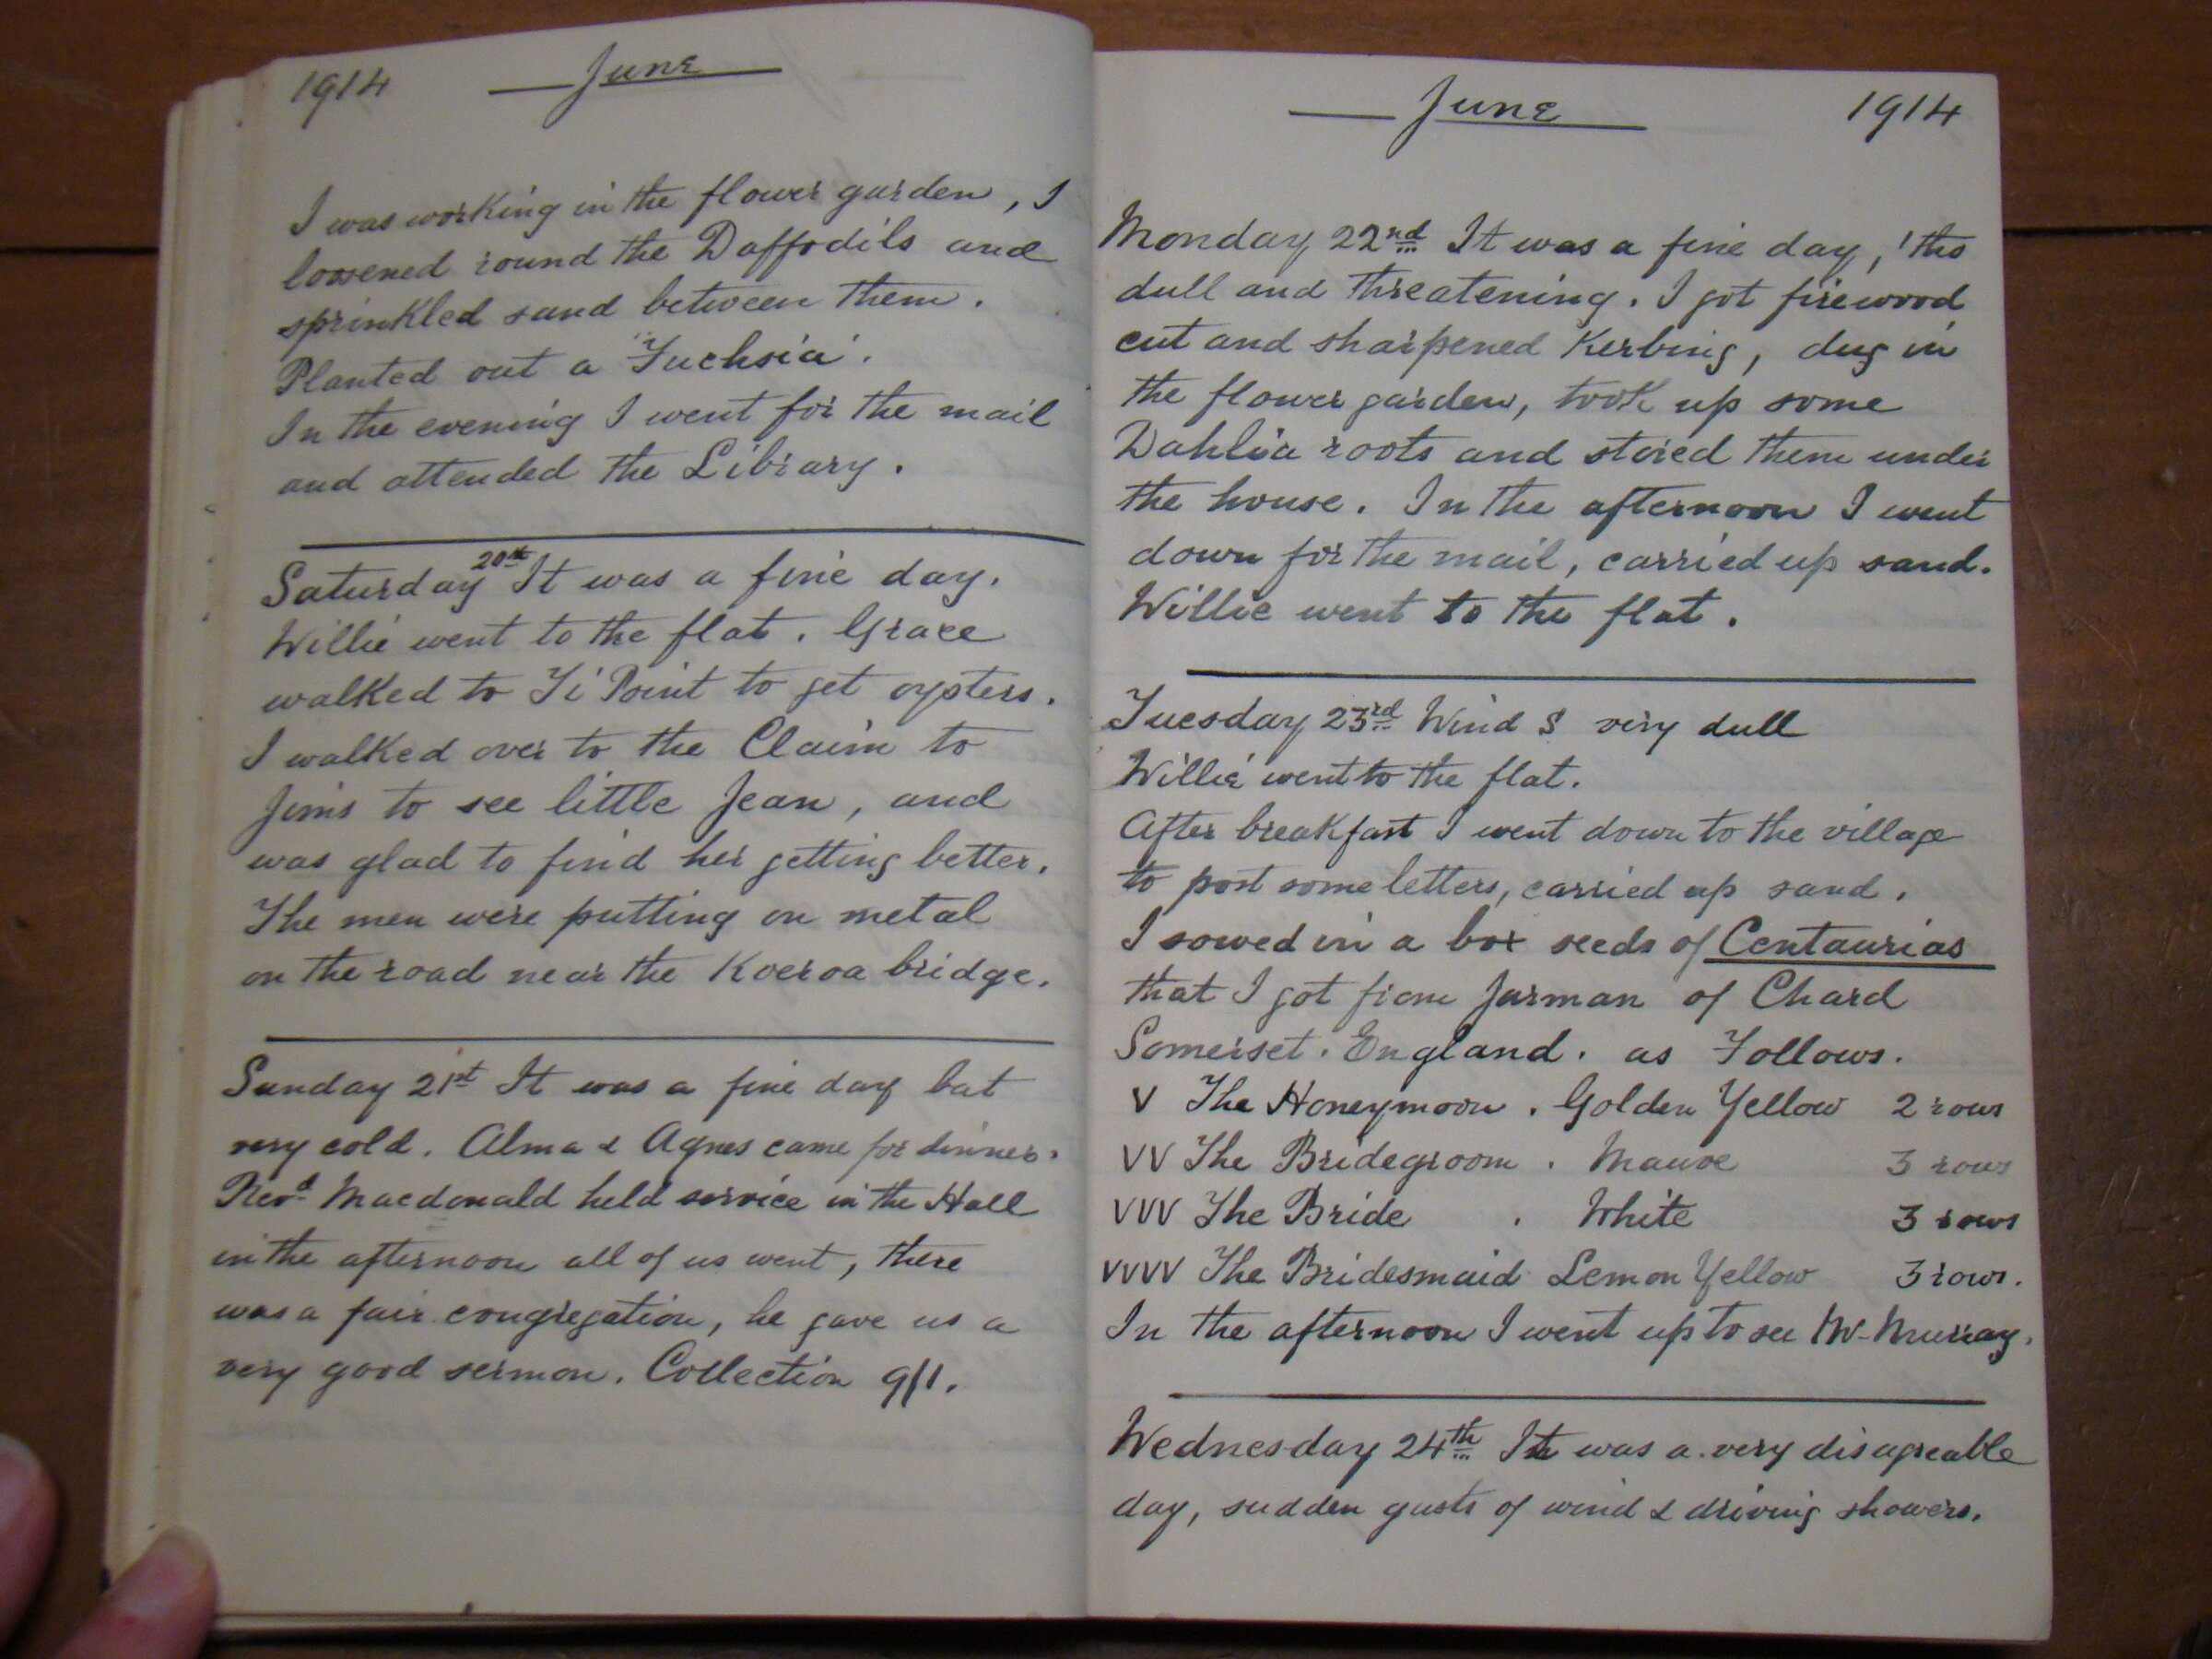 1914 June
I was working in the flower garden, I
loosened round the Daffodils and
sprinkled sand between them.
Planted out a "Fuchsia".
In the evening I went for the mail
and attended the Library.
Saturday 20th It was a fine day.
Willie went to the flat. Grace
walked to Ti Point to get oysters.
I walked over to the Claim to
Jims to see little Jean, and
was glad to find her getting better.
The men were putting on metal
on the road near the Koeroa bridge.
Sunday 21st It was a fine day but
very cold. Alma & Agnes came for dinner.
Revd Macdonald held service in the Hall
in the afternoon all of us went, there
was a fair congregation, he gave us a
very good sermon. Collection 9/1.
June 1914
Monday 22nd It was a fine day, 'tho
dull and threatening. I got firewood
cut and sharpened Kerbing, dug in
the flower garden, took up some
Dahlia roots and stored them under
the house. In the afternoon I went
down for the mail, carried up sand.
Willie went to the flat.
Tuesday 23rd Wind S very dull
Willie went to the flat.
After breakfast I went down to the village
to post some letters, carried up sand.
I sowed in a box seeds of Centaurias
that I got from Jarman of Chard
Somerset. England. as Follows.
V The Honeymoon. Golden Yellow 2 rows
VV The Bridegroom. Mauve 3 rows
VVV The Bride . White 3 rows
VVVV The Bridesmaid Lemon Yellow 3 rows.
In the afternoon I went up to see Murray.
Wednesday 24th It was a very disagreable
day, sudden gusts of wind & driving showers.